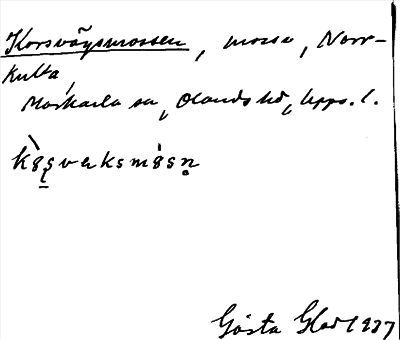 Korsvägsmossen, mosse, Norr-
kulla,
Morkarla sn, Olands hd, Upps. l.
Gösta Glad 1937